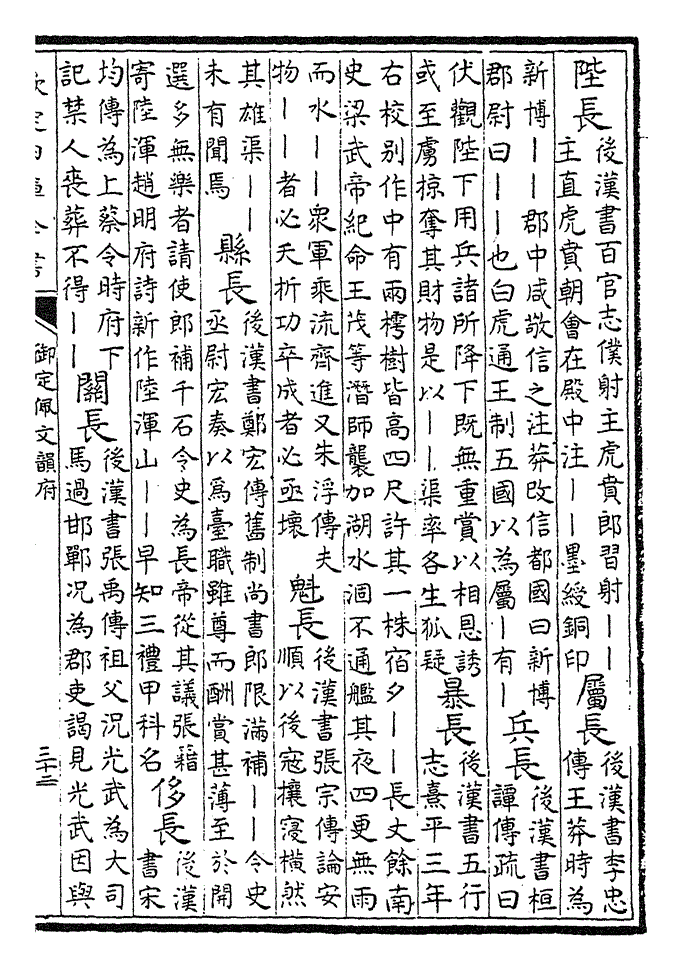 陛長 後漢書百官志僕射主虎賁郎習射——
主直虎賁朝會在殿中注——墨綬銅印
屬長 後漢書李忠
傳王莽時為
新博——郡中咸敬信之注莽改信都國曰新博
郡尉曰——也白虎通王制五國以為屬—有—
兵長 後漢書桓
譚傳疏曰
伏觀陛下用兵諸所降下既無重賞以相恩誘
或至虜掠奪其財物是以——渠率各生狐疑
暴長 後漢書五行
志熹平三年
右校别作中有兩樗樹皆高四尺許其一株宿夕——長丈餘南
史梁武帝紀命王茂等潛師襲加湖水涸不通艦其夜四更無雨
而水——衆軍乘流齊進又朱浮傳夫
物——者必夭折功卒成者必亟壞
魁長 後漢書張宗傳論安
順以後寇攘寖橫然
其雄渠——
未有聞焉
縣長 後漢書鄭宏傳舊制尚書郎限滿補——令史
丞尉宏奏以爲臺職雖尊而酬賞甚薄至於開
選多無樂者請使郎補千石令史為長帝從其議張籍
寄陸渾趙明府詩新作陸渾山——早知三禮甲科名
侈長 後漢
書宋
均傳為上蔡令時府下
記禁人喪葬不得——
關長 後漢書張禹傳祖父況光武為大司
馬過邯鄲况為郡吏謁見光武因與
欽定四庫全書
御定佩文韻府
三十二